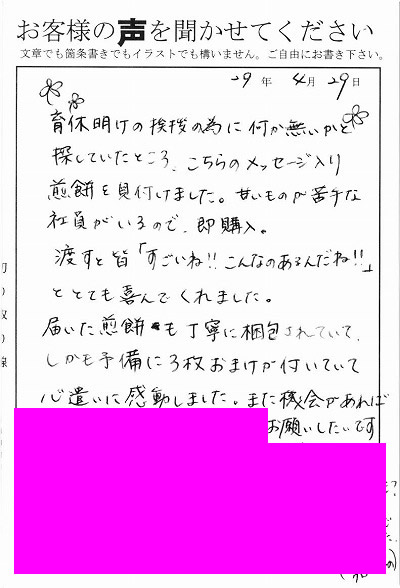 お客様の声を聞かせてください
文章でも箇条書きでもイラストでも構いません。ご自由にお書き下さい。
29年 4月 29日
育休明けの挨拶の為に何か無いかと
探していたところ、こちらのメッセージ入り
煎餅を見付けました。甘いものが苦手な
社員がいるので、即購入。
渡すと皆「すごいね!!こんなのあるんだね!!」
ととても喜んでくれました。
届いた煎餅も丁寧に梱包されていて、
しかも予備に3枚おまけが付いていて
心遣いに感動しました。また機会があれば
お願いしたいです